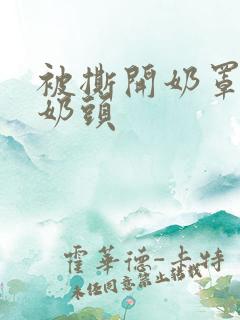 被撕開奶罩
奶頭
霍華德-卡特
未经同意禁止搭载